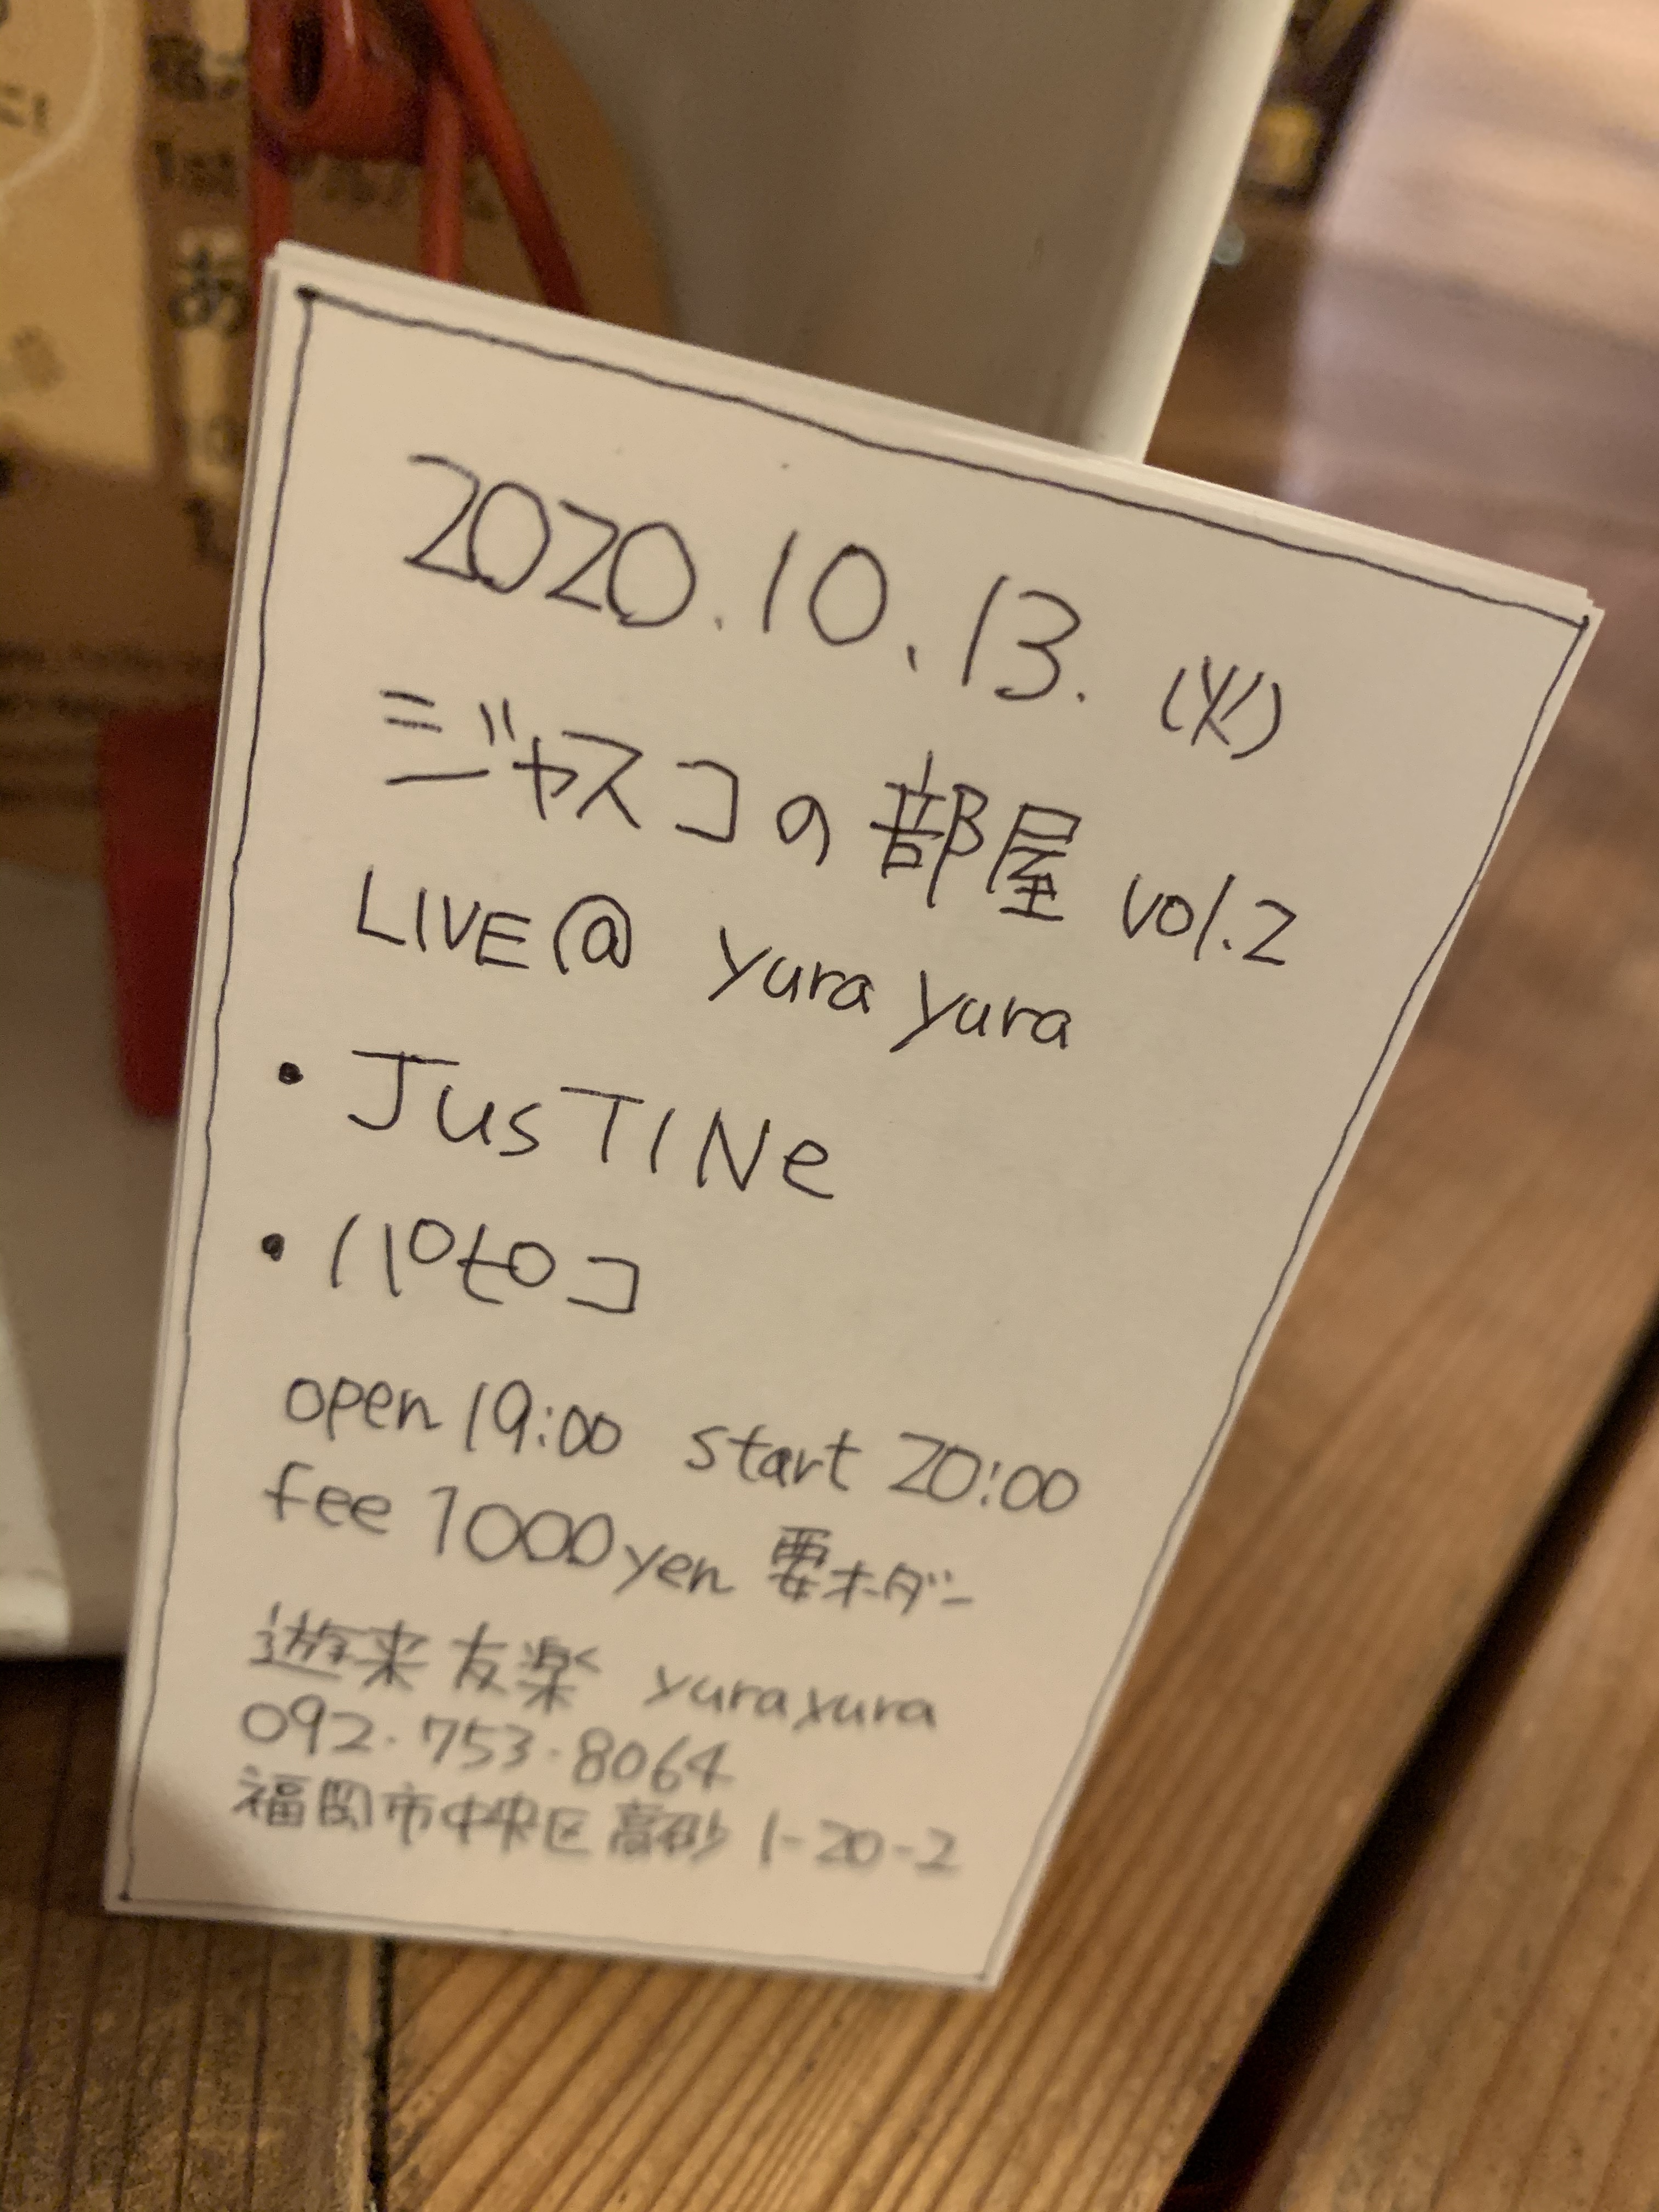 2020.10.13.(火)
ジャスコの部屋 vol.2
LIVE@ yura yura
・JusTINe
・パセロコ
open 19:00 start 20:00
fee 1000yen 要オーダー
遊来友楽 yurayura
092.753.8064
福岡市中央区高砂 1-20-2
1st
あ